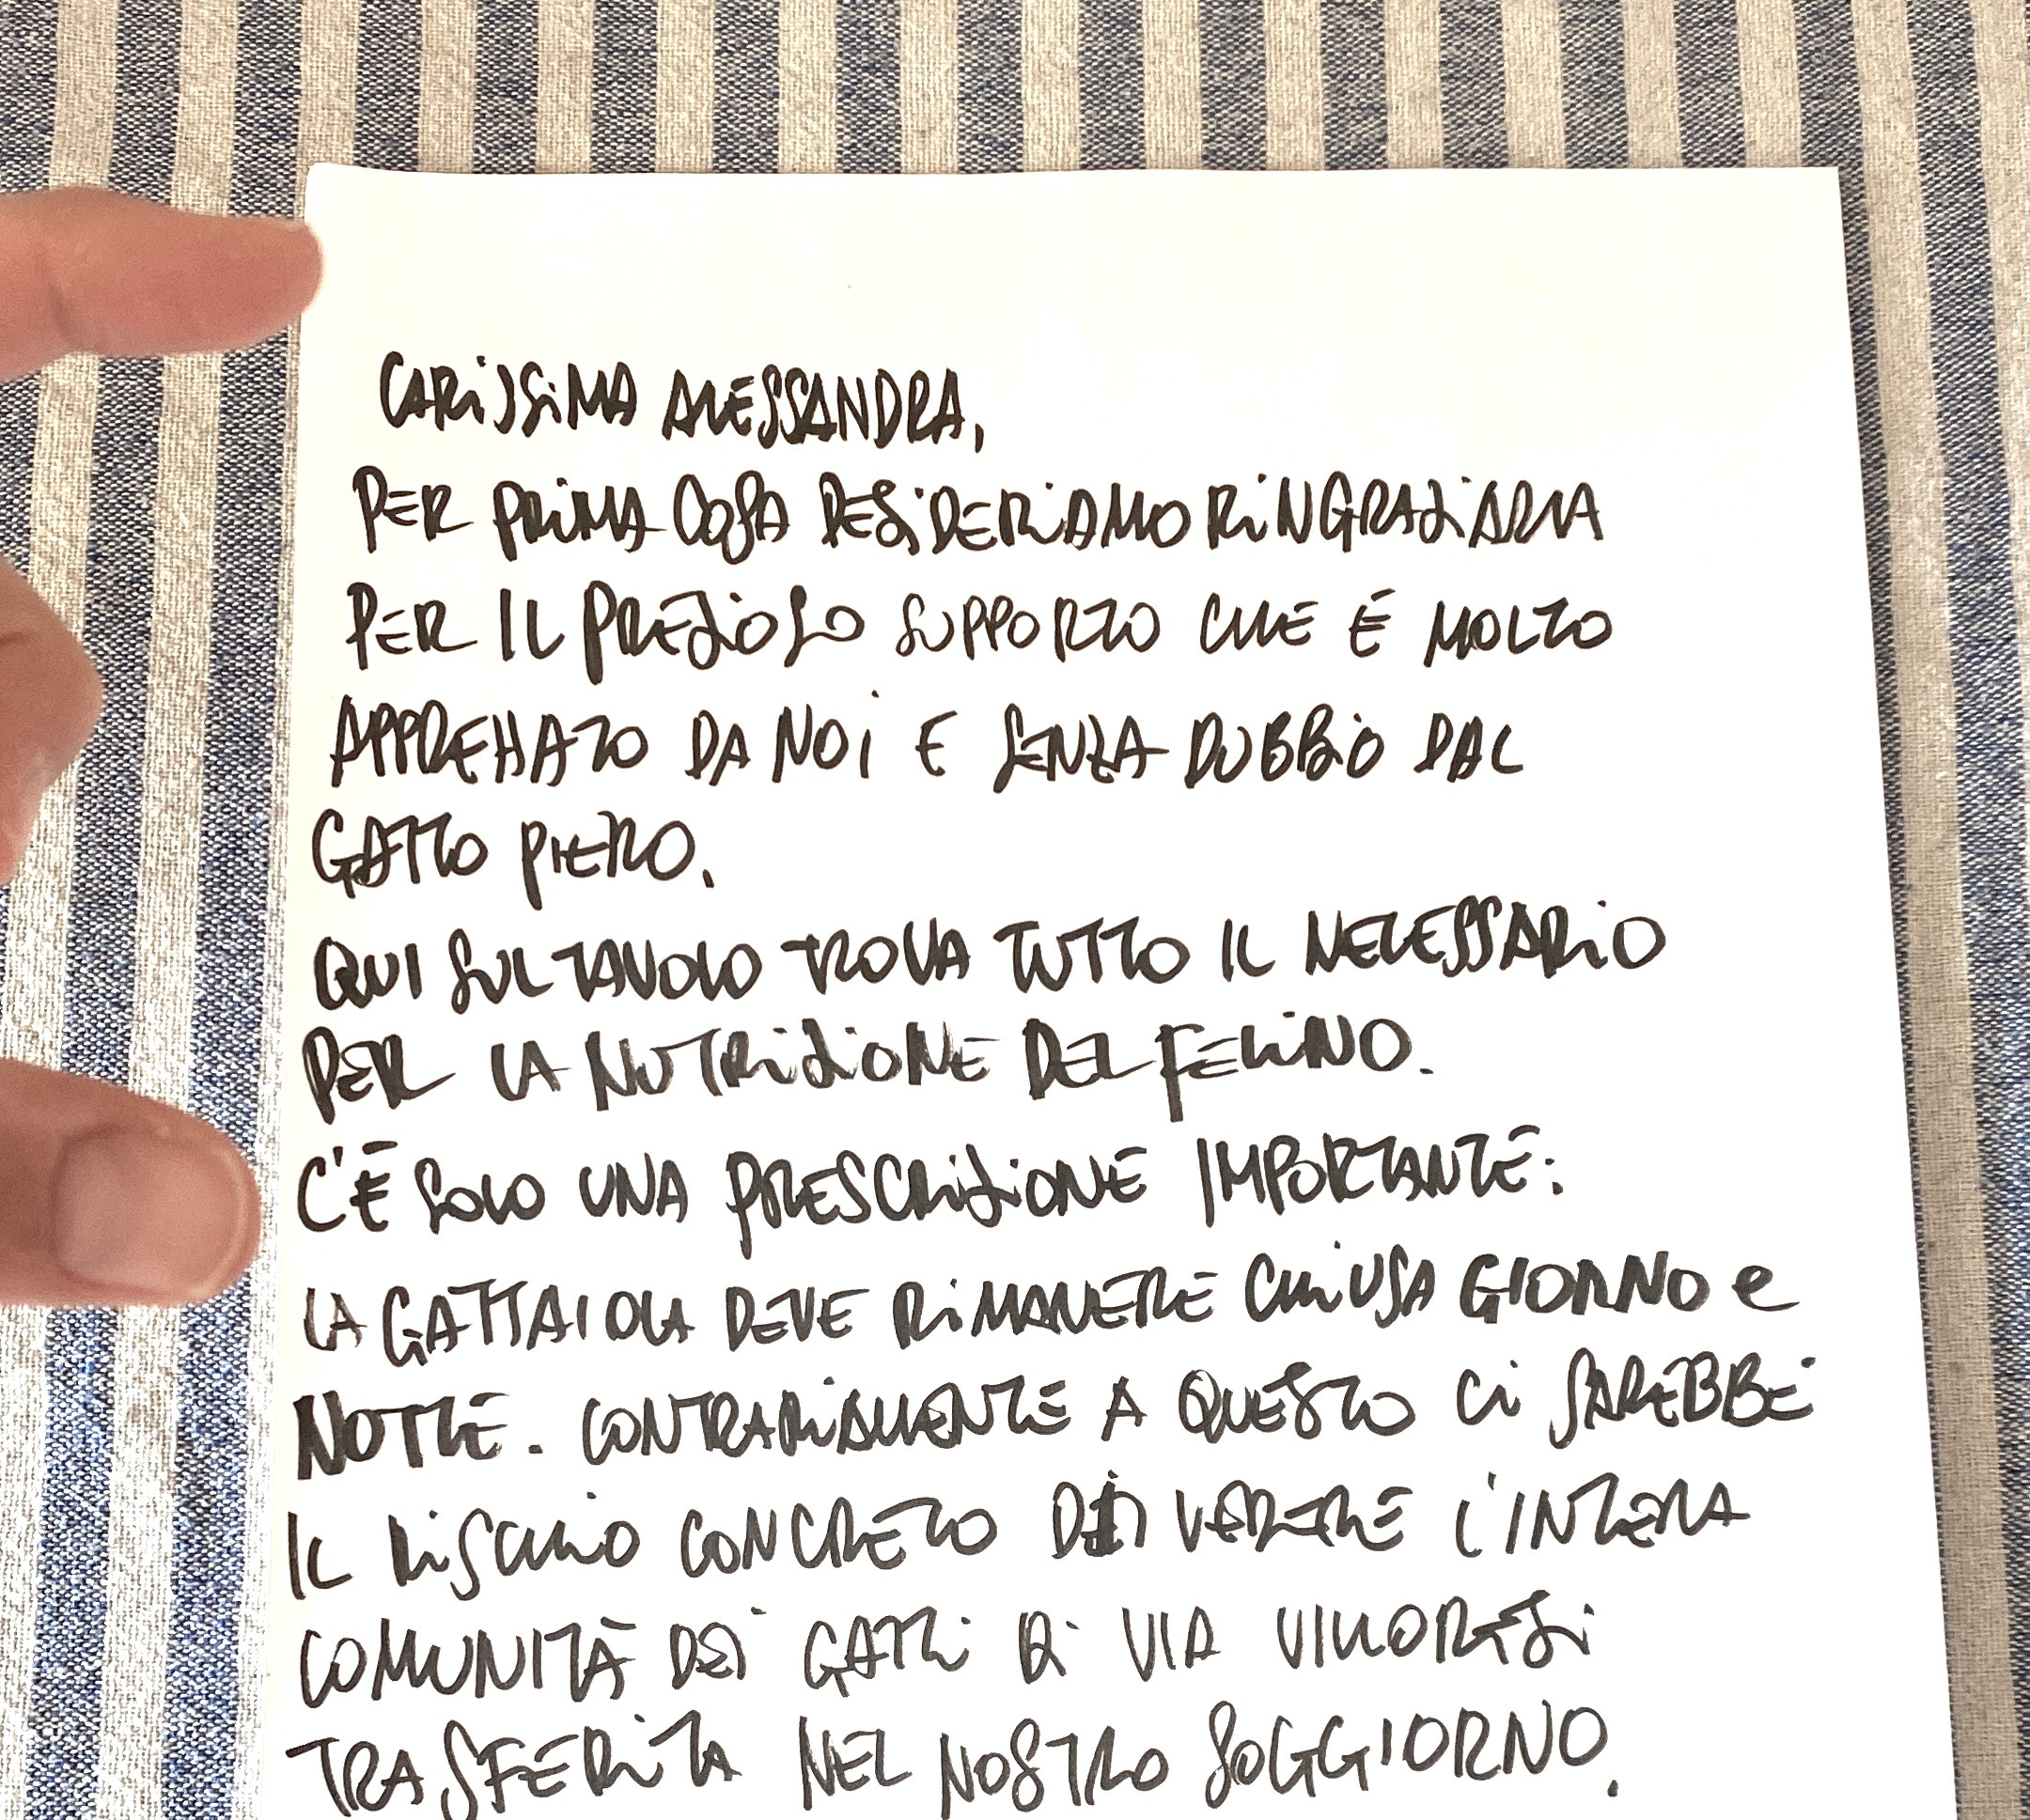 CARISSIMA ALESSANDRA,
PER PRIMA COSA DESIDERIAMO RINGRAZIARLA
PER IL PREZIOSO SUPPORTO CHE È MOLTO
APPREZZATO DA NOI E SENZA DUBBIO DAL
GATTO PIERO.
QUI SUL TAVOLO TROVA TUTTO IL NECESSARIO
PER LA NUTRIZIONE DEL FELINO.
C'È SOLO UNA PRESCRIZIONE IMPORTANTE:
LA GATTAIOLA DEVE RIMANERE CHIUSA GIORNO e
NOTTE. CONTRARIAMENTE A QUESTO CI SAREBBE
IL RISCHIO CONCRETO DI VEDERE L'INTERA
COMUNITÀ DEI GATTI DI VIA VILLORESI
TRASFERITA NEL NOSTRO SOGGIORNO.